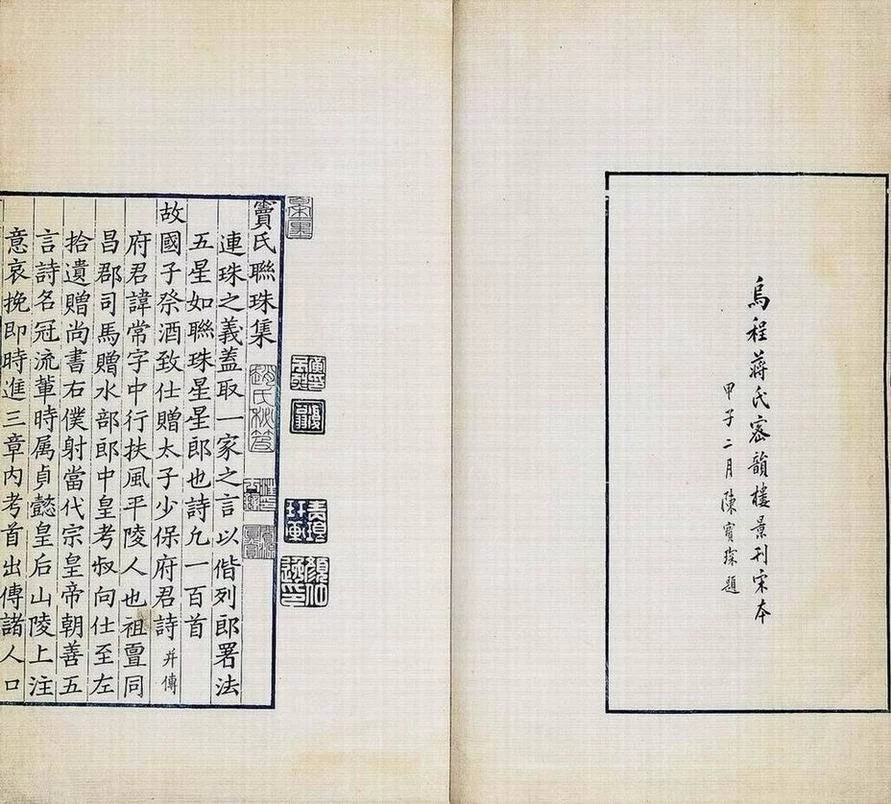 烏程蔣氏密韻樓景刊宋本
甲子二月陳寶琛題
竇氏聯珠集
連珠之義蓋取一家之言以偕列郎署法
五星如聯珠星星郎也詩凡一百首
故國子祭酒致仕贈太子少保府君詩并傳
府君諱常字中行扶風平陵人也祖亶同
昌郡司馬贈水部郎中皇考叔向仕至左
拾遺贈尚書右僕射當代宗皇帝朝善五
言詩名冠流輩時属貞懿皇后山陵上注
意哀挽即時進三章内考首出傳諸人口
趙氏秘笈